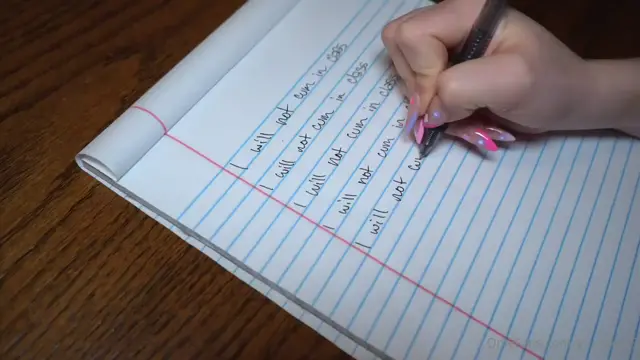 I will not cum in class
I will not cum in class
I will not cum in class
I will not cum in
I will not cu